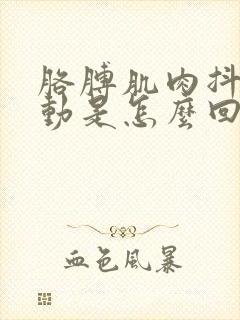 胳膊肌肉抖
動是怎麽回
血色風暴